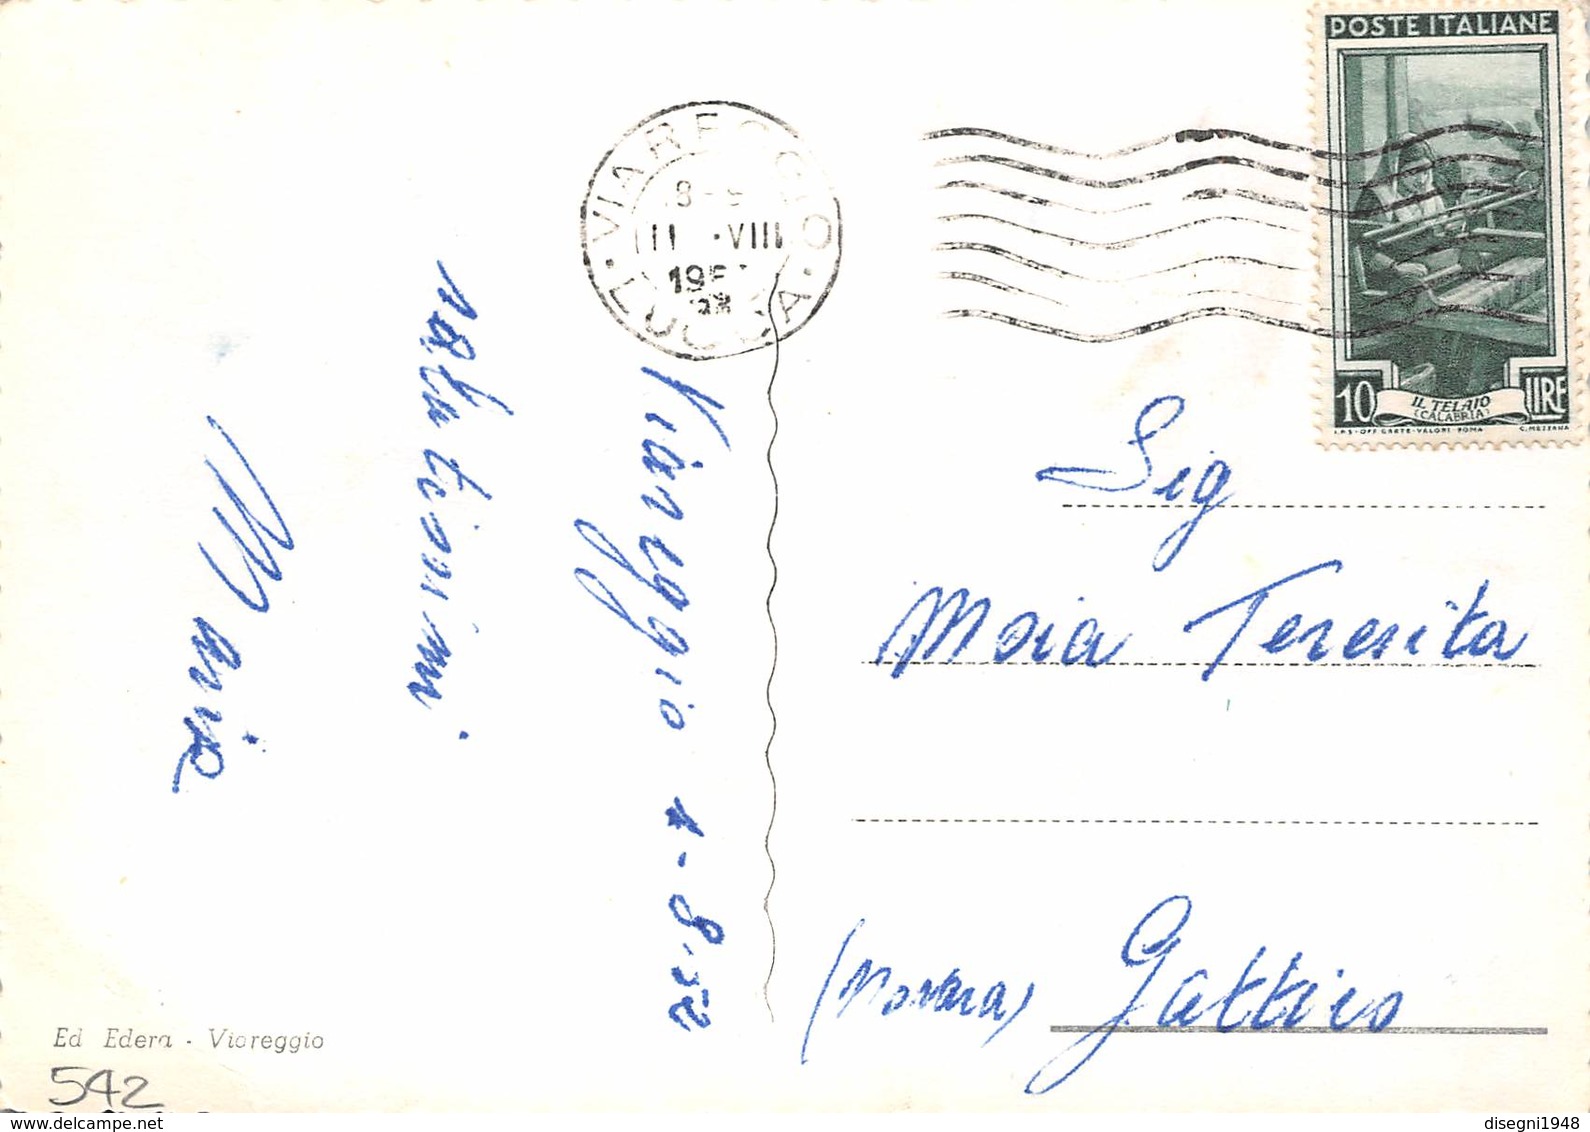 POSTE ITALIANE
10 IL TELAIO LIRE
(CALABRIA)
I.P.S-OFF. CARTE-VALORI ROMA C. MEZZANA
VIAREGGIO
VIII
LUCCA
Viareggio 1-8.52
salutissimi
Maria
Sig
Moia Teresita
(Novara) Gattico
Ed Edera - Viareggio
542
www.delcampe.net
disegni1948